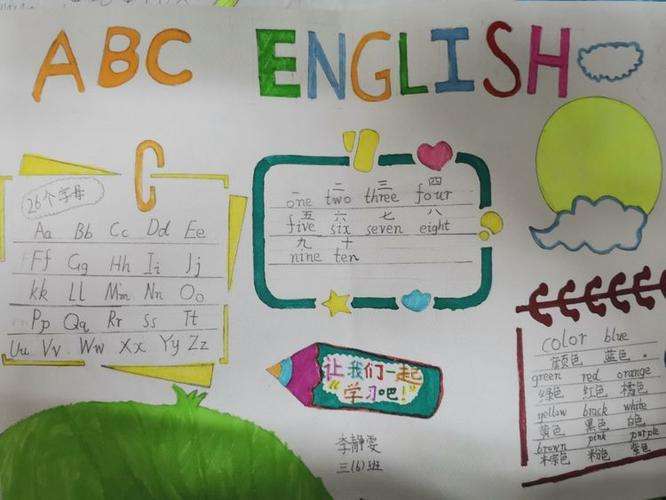 ABC ENGLISH
26个字母
Aa Bb Cc Dd Ee
Ff Gg Hh Ii Jj
kk Ll Mm Nn Oo
Pp Qq Rr Ss Tt
Uu Vv Ww Xx Yy Zz
一 二 三 四
one two three four
五 六 七 八
five six seven eight
九 十
nine ten
让我们一起
学习吧!
李静雯
三(6)班
color blue
颜色 蓝色
green red orange
绿色 红色 橘色
yellow black white
黄色 黑色 白色
brown pink purple
棕色 粉色 紫色